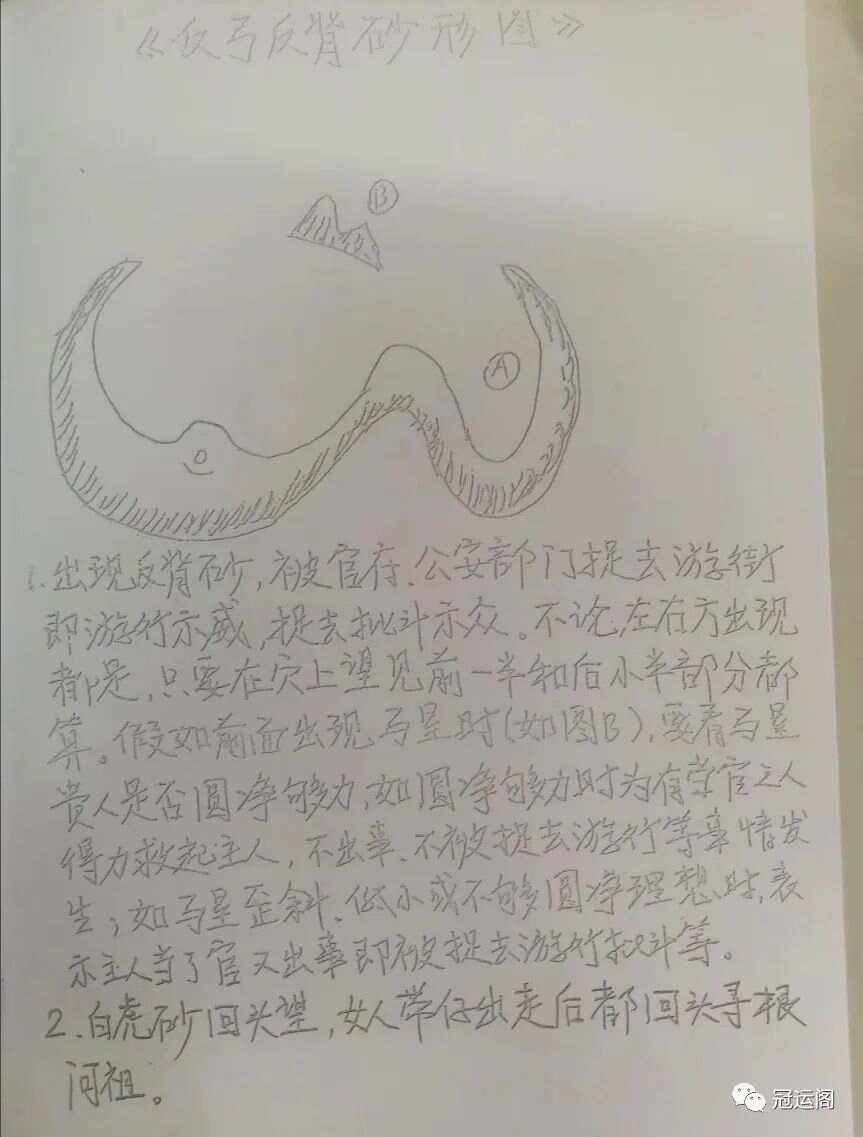 《反弓反背砂形图》
B
A
1.出现反背砂,被官府、公安部门捉去游街
即游行示威,捉去批斗示众。不论左右方出现
都是,只要在穴上望见前一半和后小半部分都
算。假如前面出现马星时(如图B),要看马星
贵人是否圆净够力,如圆净够力时为有掌官之人
得力救起主人,不出事、不被捉去游行等事情发
生;如马星歪斜、低小或不够圆净理想时,表
示主人当了官又出事即被捉去游行批斗等。
2.白虎砂回头望,女人带仔出走后都回头寻根
问祖。
冠运阁